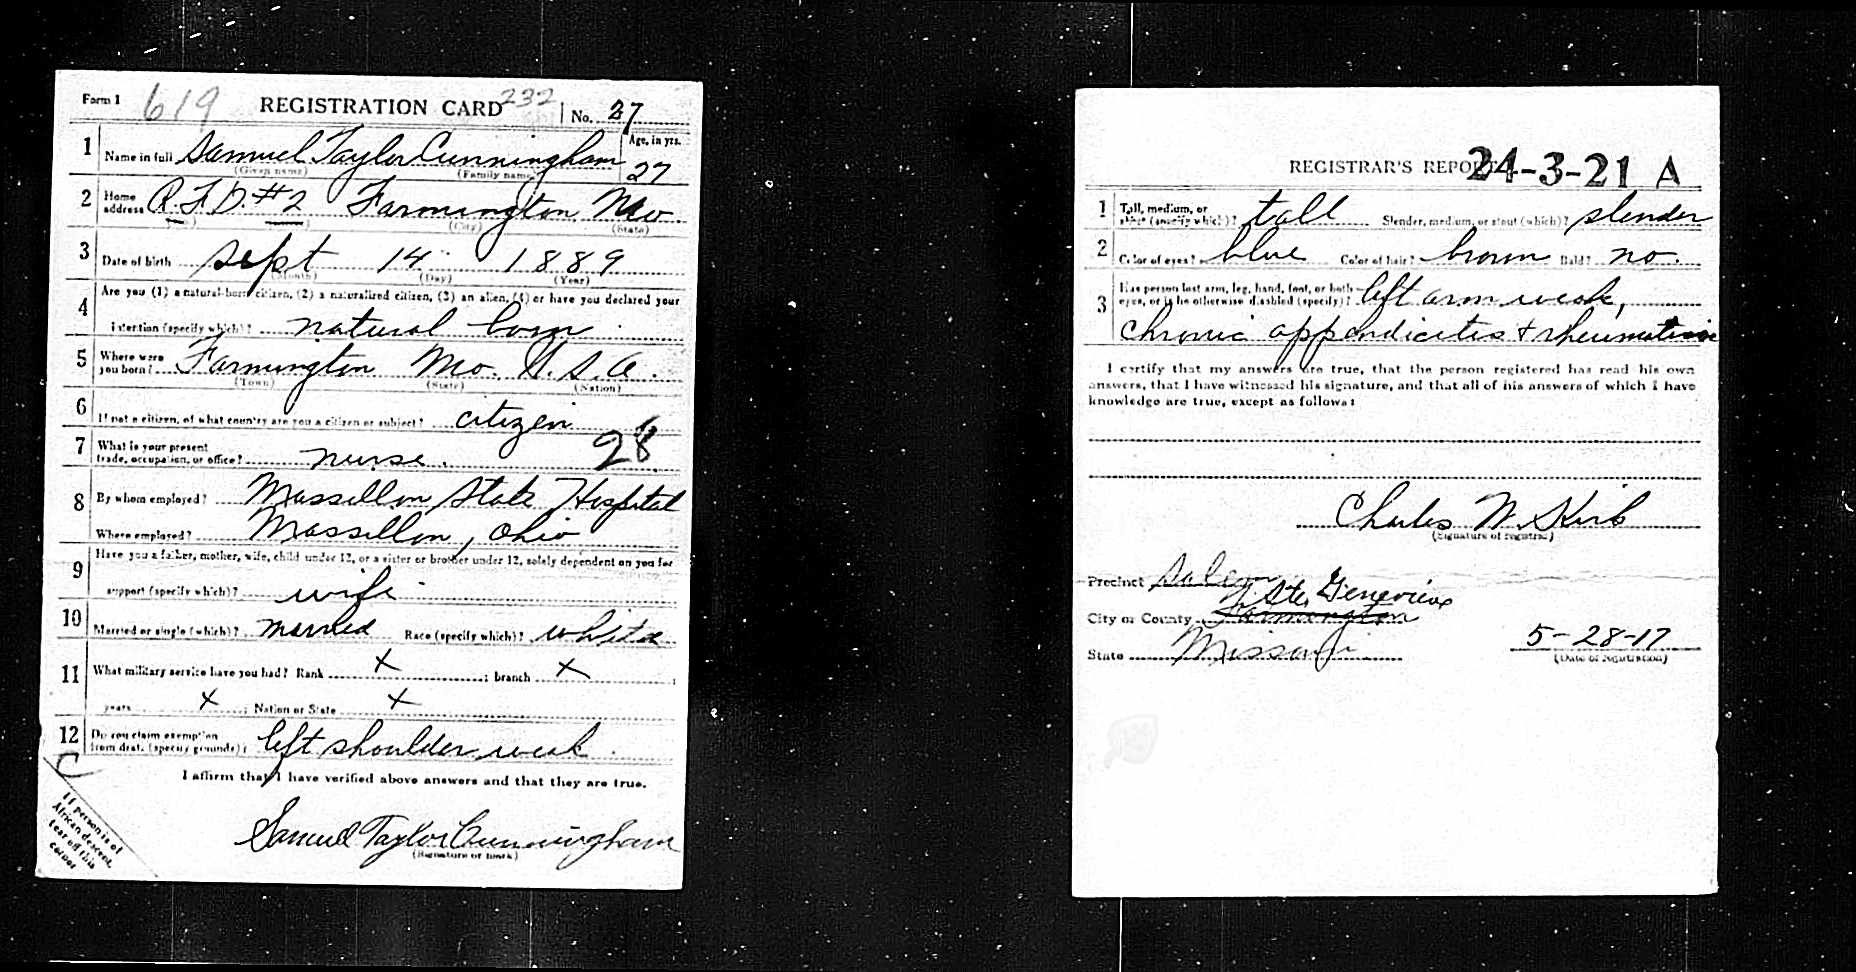 Form 1 619 REGISTRATION CARD 232 No. 27
1 Name in full Samuel Taylor Cunningham Age, in yrs.
(Given name) (Family name) 27
2 Home address R.F.D. #2 Farmington Mo.
(No.) (Street) (City) (State)
3 Date of birth Sept 14 1889
(Month) (Day) (Year)
4 Are you (1) a natural-born citizen, (2) a naturalized citizen, (3) an alien, (4) or have you declared your
intention (specify which)? natural born.
5 Where were you born? Farmington Mo. U.S.A.
(Town) (State) (Nation)
6 If not a citizen, of what country are you a citizen or subject? citizen
7 What is your present trade, occupation, or office? nurse. 28
8 By whom employed? Massillon State Hospital
Where employed? Massillon, Ohio
9 Have you a father, mother, wife, child under 12, or a sister or brother under 12, solely dependent on you for
support (specify which)? wife.
10 Married or single (which)? married Race (specify which)? white
11 What military service have you had? Rank x ; branch x ;
years x ; Nation or State x
12 Do you claim exemption from draft (specify grounds)? left shoulder weak.
I affirm that I have verified above answers and that they are true.
Samuel Taylor Cunningham
(Signature or mark)
If person is of
African descent,
tear off this
corner
REGISTRAR'S REPORT 24-3-21 A
1 Tall, medium, or short (specify which)? tall Slender, medium, or stout (which)? slender
2 Color of eyes? blue Color of hair? brown Bald? no.
3 Has person lost arm, leg, hand, foot, or both
eyes, or is he otherwise disabled (specify)? left arm weak,
chronic appendicites & rheumatism
I certify that my answers are true, that the person registered has read his own
answers, that I have witnessed his signature, and that all of his answers of which I have
knowledge are true, except as follows:
Charles W. Kirb
(Signature of registrar)
Precinct Salem
City or County Farmington Ste. Genevieve
State Missouri
5-28-17
(Date of registration)